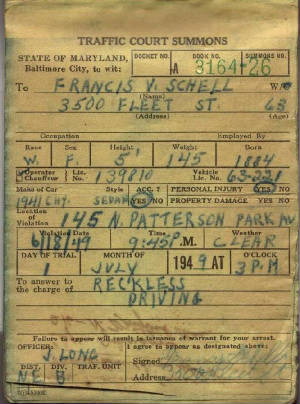 TRAFFIC COURT SUMMONS
STATE OF MARYLAND, DOCKET NO. BOOK NO. SUMMONS NO.
Baltimore City, to wit: A 3164-26
To FRANCIS V. SCHELL W
(Name)
3500 FLEET ST. 63
(Address) (Age)
Occupation Employed By
Race Sex Height Weight Born
W. F. 5' 145 1884
Operator Chauffeur Lic. No. 139810 Vehicle Lic. No. 63-221
Make of Car Style ACC.? YES NO PERSONAL INJURY YES NO
1941 CHY. SEDAN PROPERTY DAMAGE YES NO
Location of Violation 145 N. PATTERSON PARK AV
Violation Date Time Weather
6/18/49 9:45 P.M. CLEAR
DAY OF TRIAL MONTH OF 1949 AT O'CLOCK
1 JULY 3 P.M.
To answer to the charge of RECKLESS
DRIVING
Failure to appear will result in issuance of warrant for your arrest.
OFFICER: I agree to appear as designated above:
J. LONG Signed
DIST. DIV. TRAF. UNIT
NE B Address